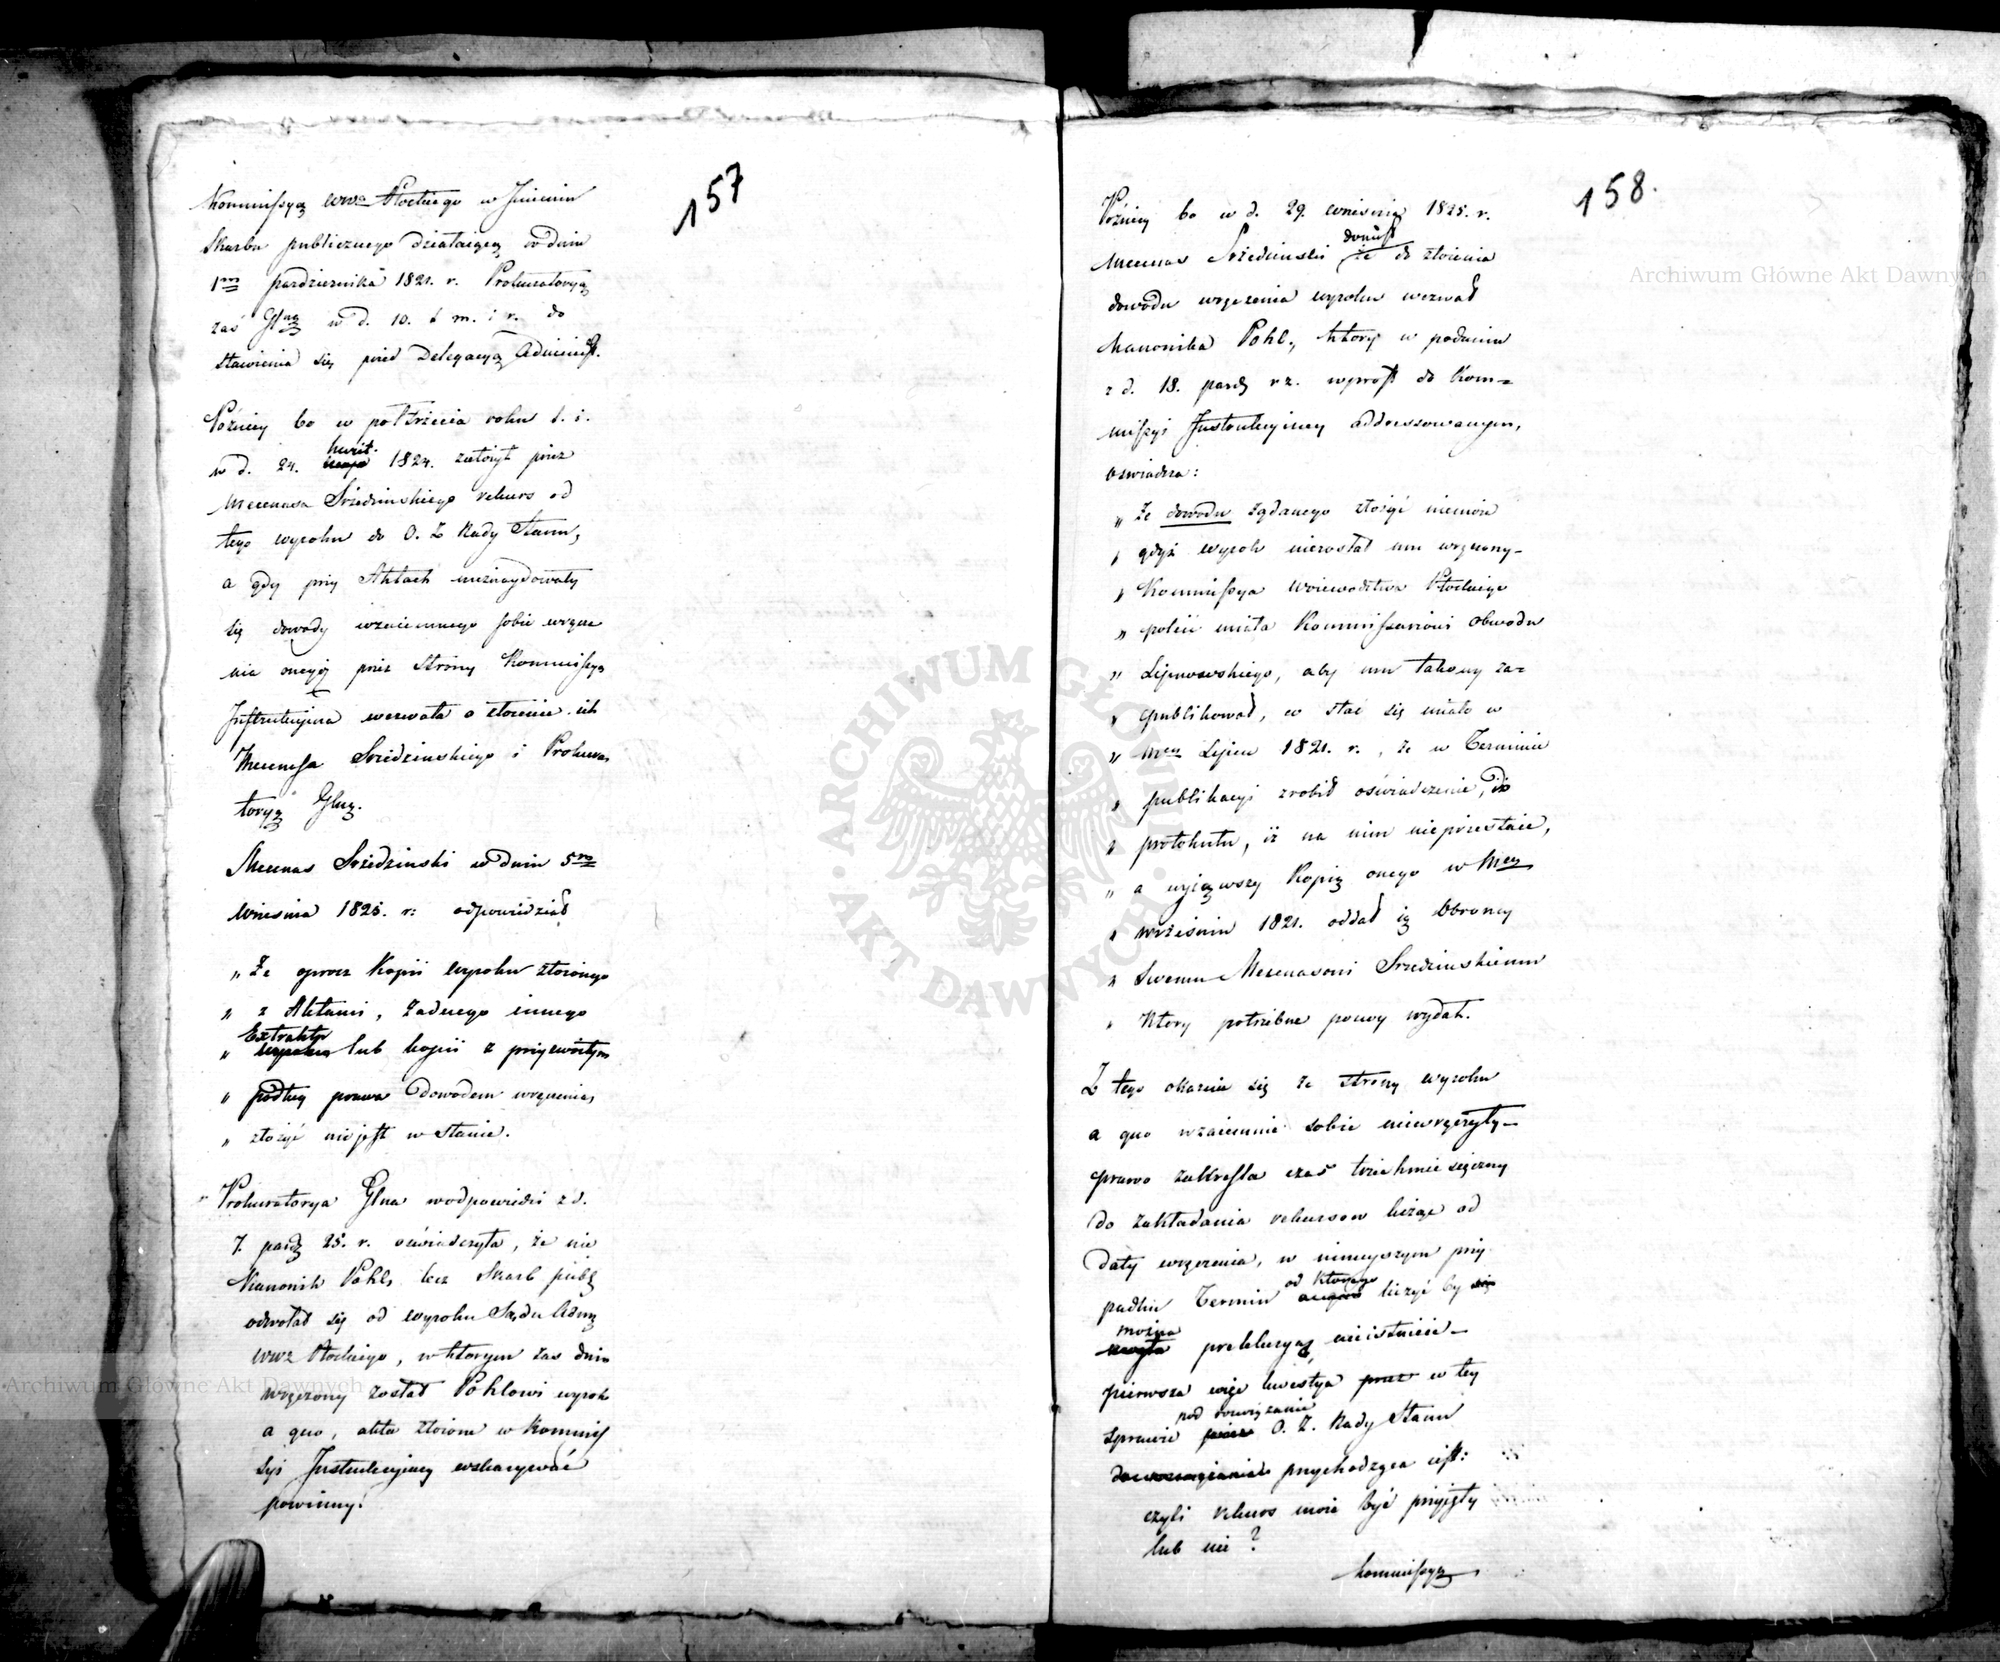 157
Kommissyą Wwa Płockiego w Jmieniu
Skarbu publicznego działaiącą w dniu
1mo pazdziernika 1821. r. Prokuratoryą
zaś Glną w d. 10. t. m. i r. do
stawienia się przed Delegacyą Administ.
Pózniey bo w półtrzecia roku t. i.
w d. 24. kwiet. 1824. założył przez
Mecenasa Srzedzinskiego rekurs od
tego wyroku do O. Z. Rady Stanu,
a gdy przy Aktach nieznaydowały
się dowody wzaiemnego sobie wręcze
nia onegoż przez Strony Kommissya
Jnstrukcyina wezwała o złożenie ich
Mecenasa Srzedzinskiego i Prokura
toryą Glną.
Mecenas Srzedzinski w dniu 5mo
Wrzesnia 1825. r: odpowiedział
„ Ze oprocz Kopii wyroku złożonego
„ z Aktami, żadnego innego
Extraktu
„ wyroku lub kopii z przyzwoitym
„ podług prawa Dowodem wręczenia,
„ złożyć nie jest w Stanie.
„ Prokuratorya Glna w odpowiedzi z d.
7. paźdz 25. r. oświadczyła, że nie
Kanonik Pohl, lecz Skarb publ
odwołał się od wyroku Sądu Adm
Wwa Płockiego, w ktorym zas dniu
wręczony został Pohlowi wyrok
a quo, akta złożone w Kommis
syi Jnstrukcyiney wskazywać
powinny.
158.
Pózniey bo w d. 29. Wrzesnia 1825. r.
doniósł
Mecenas Srzedzinski że do złożenia
dowodu wręczenia wyroku wezwał
Kanonika Pohl, który w podaniu
z d. 18. paźdz rz. wprost do Kom=
missyi Jnstrukcyiney addressowanym,
oswiadcza:
„ Że dowodu żądanego złożyć niemoże
„ gdyż wyrok niezostał mu wręczony_
„ Kommissya Woiewodztwa Płockiego
„ polecić miała Kommissarzowi obwodu
„ Lipnowskiego, aby mu takowy za=
„ publikował, co stać się miało w
„ Mcu Lipcu 1821. r., że w Terminie
„ publikacyi zrobił oświadczenie, do
„ protokułu, iż na nim nieprzestaie,
„ a wyiąwszy Kopią onego w Mcu
„ wrześniu 1821. oddał ią Obroncy
„ Swemu Mecenasowi Srzedzinskiemu
„ Ktory potrzebne pozwy wydał.
Z tego okazuie się że strony wyroku
a quo wzaiemnie sobie niewręczyły_
prawo zakreśla czas trzechmiesięczny
do zakładania rekursow licząc od
daty wręczenia, w ninieyszym przy
od którego
padku Termin liczyć by się
można
mogła prekluzyą, nieistnieie_
pierwsza więc kwestya przez w tey
pod rozwiązanie
Sprawie przez O. Z. Rady Stanu
przychodząca iest:
czyli rekurs może być przyięty
lub nie?
Kommissya
Archiwum Główne Akt Dawnych
Archiwum Główne Akt Dawnych
ARCHIWUM GŁÓWNE
AKT DAWNYCH